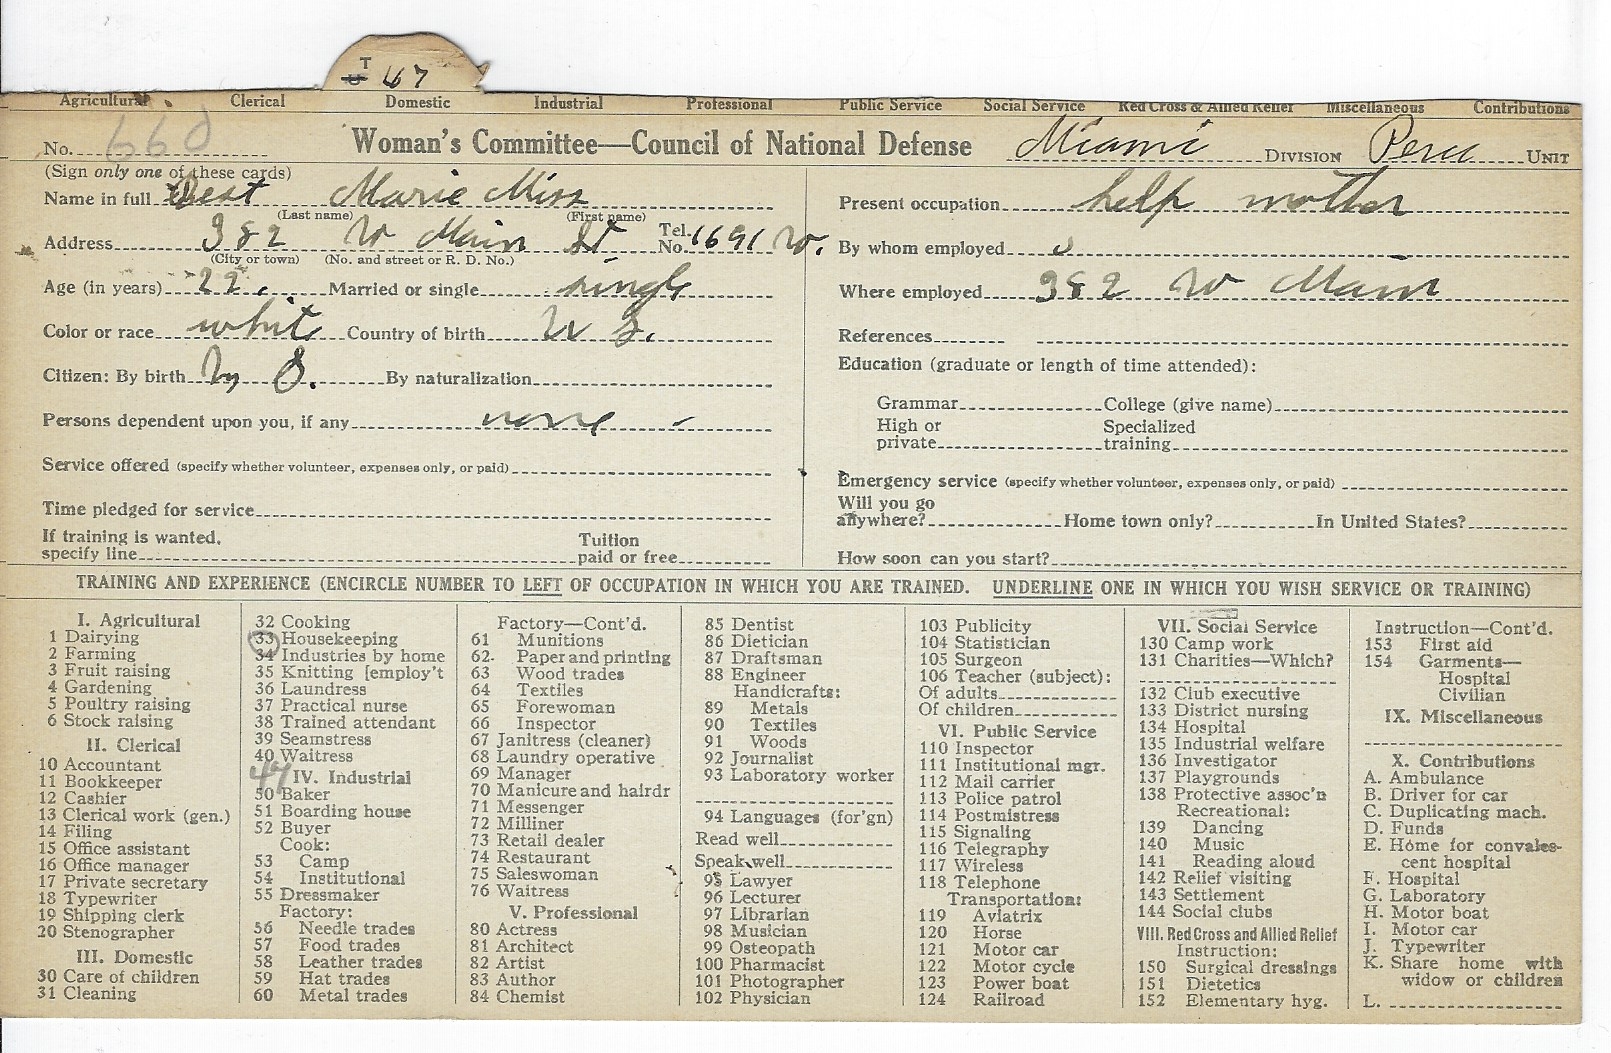 T 47
Agricultural Clerical Domestic Industrial Professional Public Service Social Service Red Cross & Allied Relief Miscellaneous Contributions
No. 660 Woman's Committee—Council of National Defense Miami DIVISION Peru UNIT
(Sign only one of these cards)
Name in full Marie Miss
(Last name) (First name)
Address 382 W Main St Tel. No. 1691 W.
(City or town) (No. and street or R. D. No.)
Age (in years) 22. Married or single single
Color or race whit Country of birth U S.
Citizen: By birth S. By naturalization
Persons dependent upon you, if any none -
Service offered (specify whether volunteer, expenses only, or paid)
Time pledged for service
If training is wanted, specify line Tuition paid or free
Present occupation help mother
By whom employed
Where employed 382 W Main
References
Education (graduate or length of time attended):
Grammar College (give name)
High or private Specialized training
Emergency service (specify whether volunteer, expenses only, or paid)
Will you go anywhere? Home town only? In United States?
How soon can you start?
TRAINING AND EXPERIENCE (ENCIRCLE NUMBER TO LEFT OF OCCUPATION IN WHICH YOU ARE TRAINED. UNDERLINE ONE IN WHICH YOU WISH SERVICE OR TRAINING)
I. Agricultural
1 Dairying
2 Farming
3 Fruit raising
4 Gardening
5 Poultry raising
6 Stock raising
II. Clerical
10 Accountant
11 Bookkeeper
12 Cashier
13 Clerical work (gen.)
14 Filing
15 Office assistant
16 Office manager
17 Private secretary
18 Typewriter
19 Shipping clerk
20 Stenographer
III. Domestic
30 Care of children
31 Cleaning
32 Cooking
33 Housekeeping
34 Industries by home
35 Knitting [employ't
36 Laundress
37 Practical nurse
38 Trained attendant
39 Seamstress
40 Waitress
47
IV. Industrial
50 Baker
51 Boarding house
52 Buyer
Cook:
53 Camp
54 Institutional
55 Dressmaker
Factory:
56 Needle trades
57 Food trades
58 Leather trades
59 Hat trades
60 Metal trades
Factory—Cont'd.
61 Munitions
62 Paper and printing
63 Wood trades
64 Textiles
65 Forewoman
66 Inspector
67 Janitress (cleaner)
68 Laundry operative
69 Manager
70 Manicure and hairdr
71 Messenger
72 Milliner
73 Retail dealer
74 Restaurant
75 Saleswoman
76 Waitress
V. Professional
80 Actress
81 Architect
82 Artist
83 Author
84 Chemist
85 Dentist
86 Dietician
87 Draftsman
88 Engineer
Handicrafts:
89 Metals
90 Textiles
91 Woods
92 Journalist
93 Laboratory worker
94 Languages (for'gn)
Read well
Speak well
95 Lawyer
96 Lecturer
97 Librarian
98 Musician
99 Osteopath
100 Pharmacist
101 Photographer
102 Physician
103 Publicity
104 Statistician
105 Surgeon
106 Teacher (subject):
Of adults
Of children
VI. Public Service
110 Inspector
111 Institutional mgr.
112 Mail carrier
113 Police patrol
114 Postmistress
115 Signaling
116 Telegraphy
117 Wireless
118 Telephone
Transportation:
119 Aviatrix
120 Horse
121 Motor car
122 Motor cycle
123 Power boat
124 Railroad
VII. Social Service
130 Camp work
131 Charities—Which?
132 Club executive
133 District nursing
134 Hospital
135 Industrial welfare
136 Investigator
137 Playgrounds
138 Protective assoc'n
Recreational:
139 Dancing
140 Music
141 Reading aloud
142 Relief visiting
143 Settlement
144 Social clubs
VIII. Red Cross and Allied Relief
Instruction:
150 Surgical dressings
151 Dietetics
152 Elementary hyg.
Instruction—Cont'd.
153 First aid
154 Garments—
Hospital
Civilian
IX. Miscellaneous
X. Contributions
A. Ambulance
B. Driver for car
C. Duplicating mach.
D. Funds
E. Home for convales-
cent hospital
F. Hospital
G. Laboratory
H. Motor boat
I. Motor car
J. Typewriter
K. Share home with
widow or children
L.